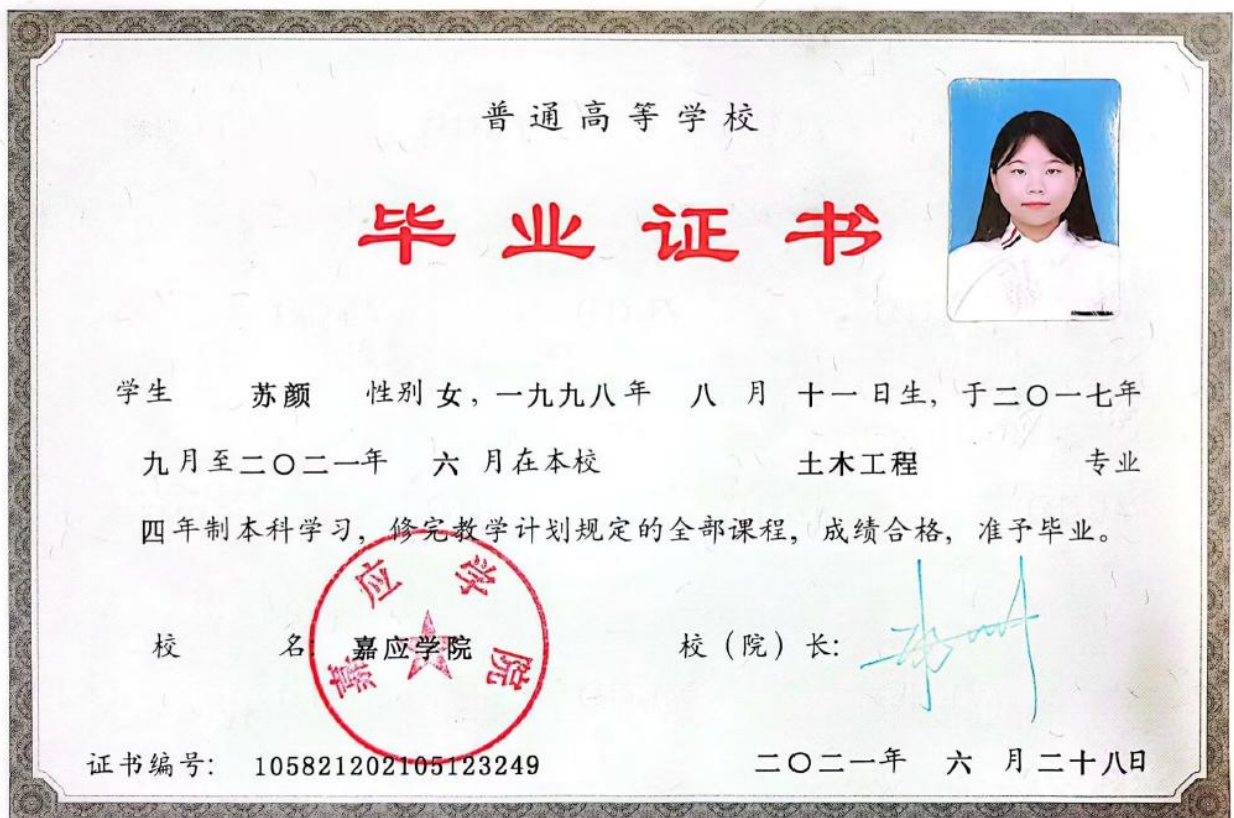 普通高等学校
毕业证书
学生 苏颜 性别 女，一九九八年 八 月 十一 日生，于二〇一七年
九月至二〇二一年 六 月在本校 土木工程 专业
四年制本科学习，修完教学计划规定的全部课程，成绩合格，准予毕业。
校 名：嘉应学院 校（院）长：
嘉应学院
证书编号：105821202105123249 二〇二一年 六 月二十八日